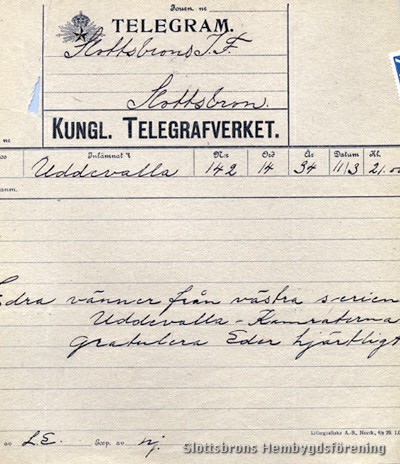 Journ. nr
TELEGRAM.
Slottsbrons I.F.
Slottsbron.
KUNGL. TELEGRAFVERKET.
nr
Inlämnat Nr Ord År Datum Kl.
Uddevalla 142 14 34 11/3 21.00
anm.
Edra vänner från västra serien
Uddevalla-Kamraterna
gratulera Eder hjärtligt
av L.E. Exp. av
Litografiska A.-B., Norrk.,
Slottsbrons Hembygdsförening